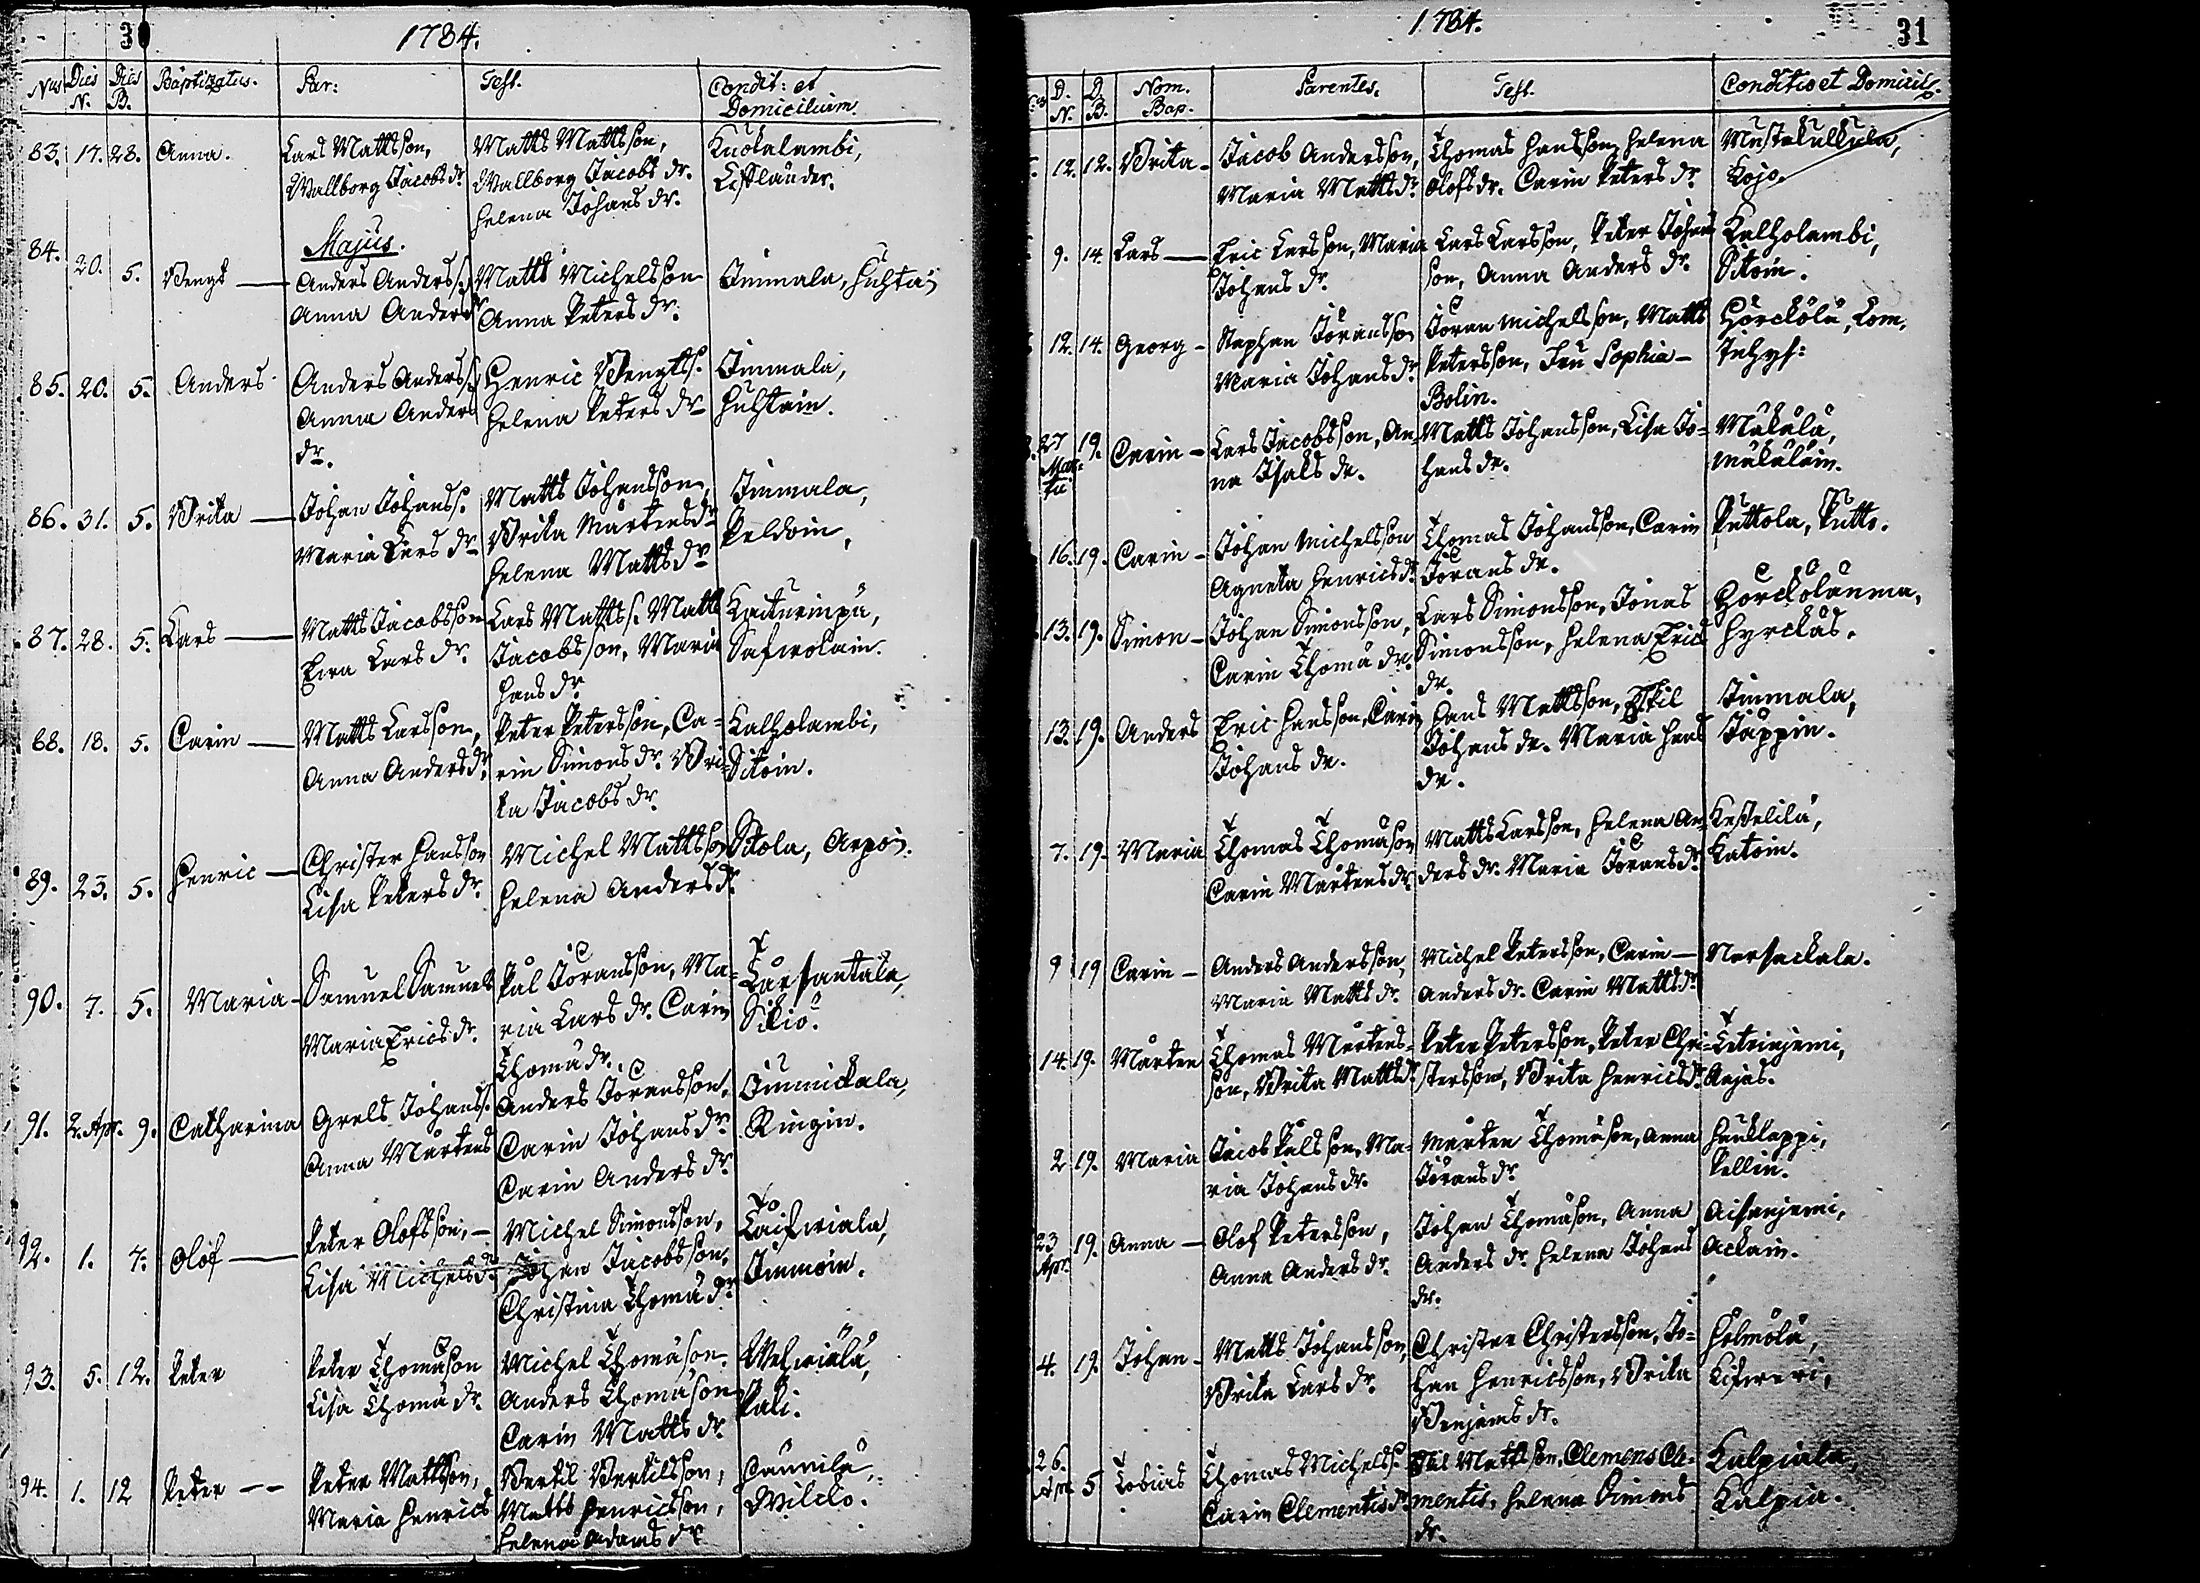 30
1784.
Nus Dies N. Dies B. Baptizatus. Par: Test. Condit: et Domicilium.
83. 17. 28. Anna. Lars Mattsson, Matts Mattsson, Kuokalambi,
Wallborg Jacobs dr. Wallborg Jacobs dr.
Helena Johans dr.
Majus.
84. 20. 5. Bengt — Anders Anderss. Matts Michelsson Immala, Huhtai
Anna Anders dr Anna Peters dr.
85. 20. 5. Anders Anders Anderss. Henric Bengts. Immala,
Anna Anders Helena Peters dr Huhtain.
dr.
86. 31. 5. Brita — Johan Johanss. Matts Johansson, Immala,
Maria Lars dr Brita Mårtens dr Peldoin.
Helena Matts dr
87. 28. 5. Lars — Matts Jacobsson Lars Matts s. Matts
Eva Lars dr. Jacobsson, Maria
Hans dr
88. 18. 5. Carin — Matts Larsson, Peter Petersson, Ca- Kalholambi,
Anna Anders dr. rin Simons dr. Bri- Sitoin.
ta Jacobs dr.
89. 23. 5. Henric — Christer Hansson Michel Mattsson Sitola, Arpoi.
Lisa Peters dr. Helena Anders dr.
90. 7. 5. Maria — Samuel Samuels Pål Göransson, Ma-
Maria Erics dr. ria Lars dr. Carin
Thomæ dr.
91. 2. Apr. 9. Catharina Grels Johanss. Anders Göransson, Jumickala,
Anna Mårtens Carin Johans dr. Ringin.
Carin Anders dr.
92. 1. 7. Olof — Peter Olofsson, — Michel Simonsson,
Lisa Michels dr. Johan Jacobsson, Immoin.
Christina Thomæ dr
93. 5. 12. Peter Peter Thomæson Michel Thomæson.
Lisa Thomæ dr. Anders Thomæson Pali.
Carin Matts dr.
94. 1. 12 Peter -- Peter Mattsson, Bertil Bertilsson,
Maria Henrics Matts Henricsson,
Helena Adams dr
1784.
31
D. N. D. B. Nom. Bap. Parentes. Test. Conditio et Domicil.
12. 12. Brita — Jacob Andersson, Thomas Hansson, Helena Mustakulkula,
Maria Matts dr. Olofs dr. Carin Peters dr. Kojo.
9. 14. Lars — Eric Larsson, Maria Lars Larsson, Peter Johans Kalholambi,
Johans dr. son, Anna Anders dr. Sitoin.
12. 14. Georg — Staphan Göransson Göran Michelsson, Matts
Maria Johans dr. Petersson, Fru Sophia —
Bolin.
27 Mar- tii 19. Carin — Lars Jacobsson, An- Matts Johansson, Lisa Jo- Mäkälä,
na Isaks dr. hans dr. Mäkäläin.
16. 19. Carin — Johan Michelsson Thomas Johansson, Carin Puttola, Putto.
Agneta Henrics dr. Görans dr.
13. 19. Simon — Johan Simonsson, Lars Simonsson, Jonas
Carin Thomæ dr. Simonsson, Helena Erics Hyrckäs.
dr.
13. 19. Anders Eric Hansson, Carin Hans Mattsson, Eskil Immala,
Johans dr. Johans dr. Maria Hans Jäppin.
dr.
7. 19. Maria Thomas Thomæson Matts Larsson, Helena An-
Carin Mårtens dr. ders dr. Maria Görans dr. Katoin.
9 19 Carin — Anders Andersson, Michel Petersson, Carin —
Maria Matts dr. Anders dr. Carin Matts dr
14. 19. Mårten Thomas Mårtens- Peter Petersson, Peter Chri-
son, Brita Matts dr. stersson, Brita Henrics dr.
2 19. Maria Jacob Pålsson, Ma- Mårten Thomæson, Anna Hauklappi,
ria Johans dr. Görans dr. Pellin.
23 Apr. 19. Anna — Olof Petersson, Johan Thomæson, Anna
Anna Anders dr. Anders dr. Helena Johans Ackain.
dr.
4. 19. Johan — Matts Johansson, Christer Christersson, Jo-
Brita Lars dr. han Henricsson, Brita
Benjams dr.
26. Apr. 5 Tobias Thomas Michelss. Pål Mattsson, Clemens Cle- Kalpiala,
Carin Clementis dr. mentis, Helena Simons Kalpia.
dr.